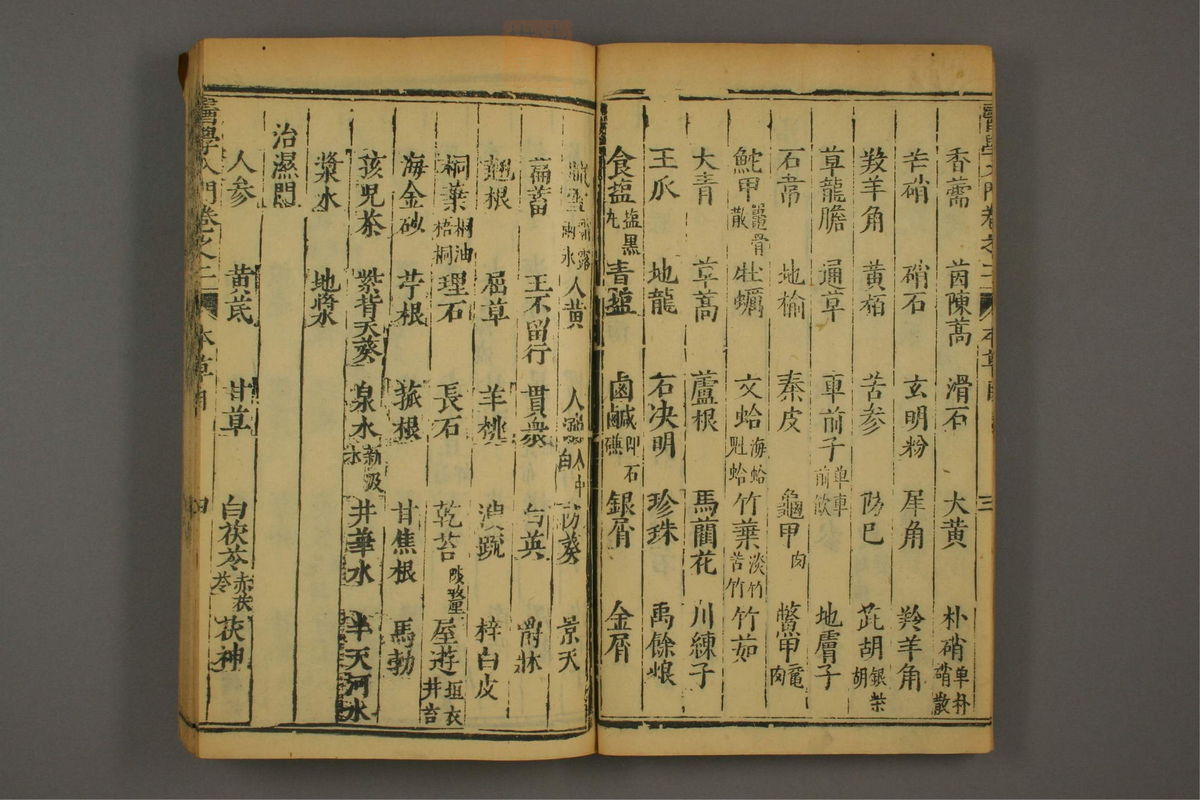 醫學入門卷之二 本草目 三
香薷 茵陳蒿 滑石 大黄 朴硝 单朴硝散
芒硝 硝石 玄明粉 犀角 羚羊角
羖羊角 黄栢 苦参 防巳 茈胡 銀柴胡
草龍膽 通草 車前子 单車前飲 地膚子
石膏 地榆 秦皮 龜甲 肉 鱉甲 黿肉
鮀甲 鼉骨散 牡蠣 文蛤 海蛤魁蛤 竹葉 淡竹苦竹 竹茹
大青 草蒿 蘆根 馬藺花 川練子
王瓜 地龍 石决明 珍珠 禹餘粮
食塩 塩黑丸 青塩 鹵鹹 即石礆 銀屑 金屑
臘雪 霜露雨水 人黄 人溺 人中白 防葵 景天
萹蓄 王不留行 貫衆 白英 爵牀
翹根 屈草 羊桃 溲疏 梓白皮
桐葉 桐油梧桐 理石 長石 乾苔 陟釐 屋遊 垣衣井苔
海金砂 苧根 菰根 甘焦根 馬勃
孩兒茶 紫背天葵 泉水 新汲水 井華水 半天河水
漿水 地漿水
治濕門
人参 黄芪 甘草 白茯苓 赤茯苓 茯神
醫學入門卷之二 本草目 四